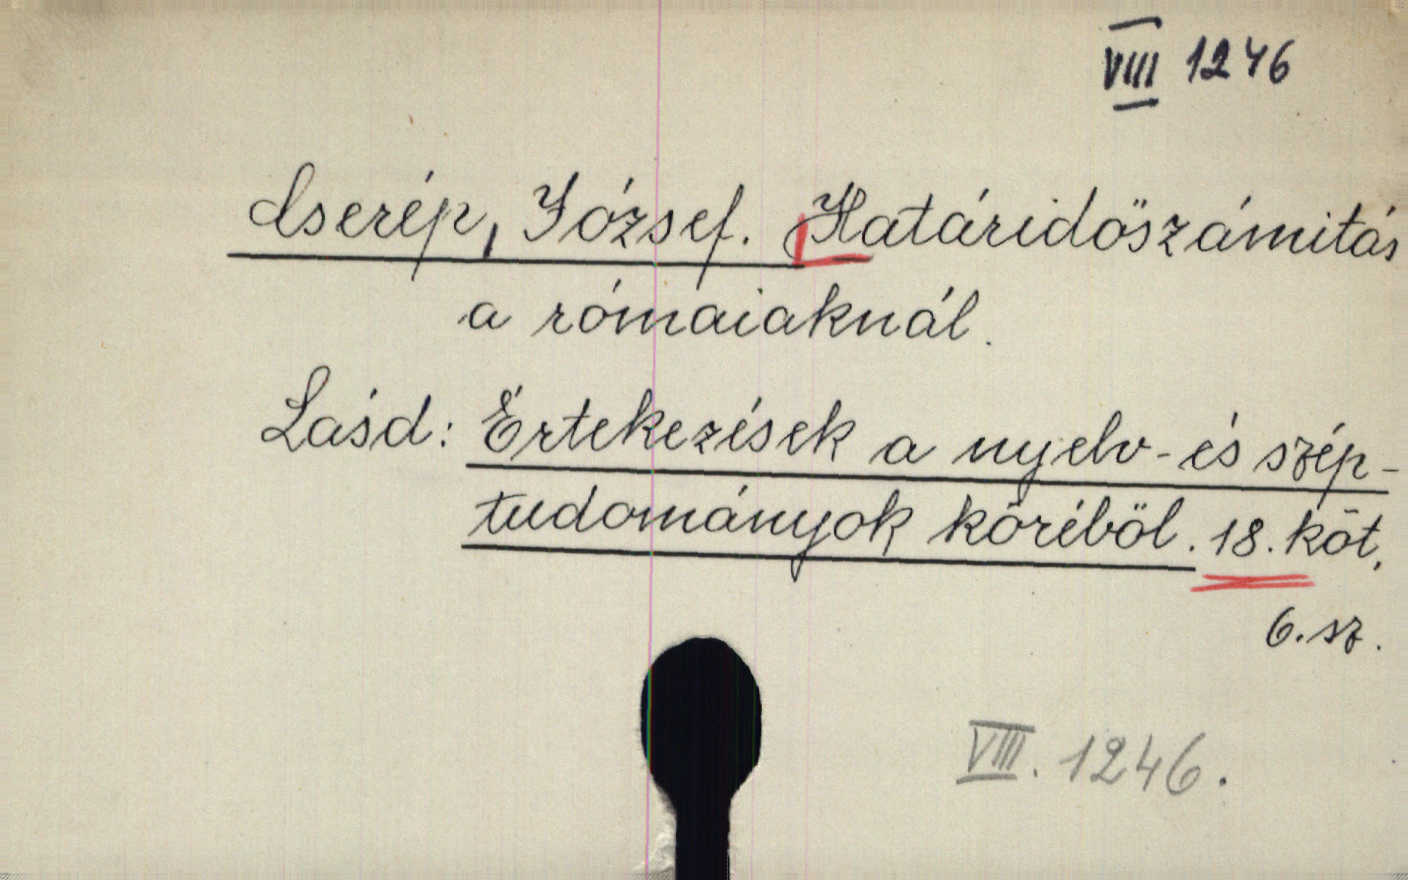 VIII 1246
Cserép, József. Határidőszámitás
a rómaiaknál.
Lásd: Értekezések a nyelv- és szép-
tudományok köréböl. 18. köt.
6. sz.
VIII. 1246.